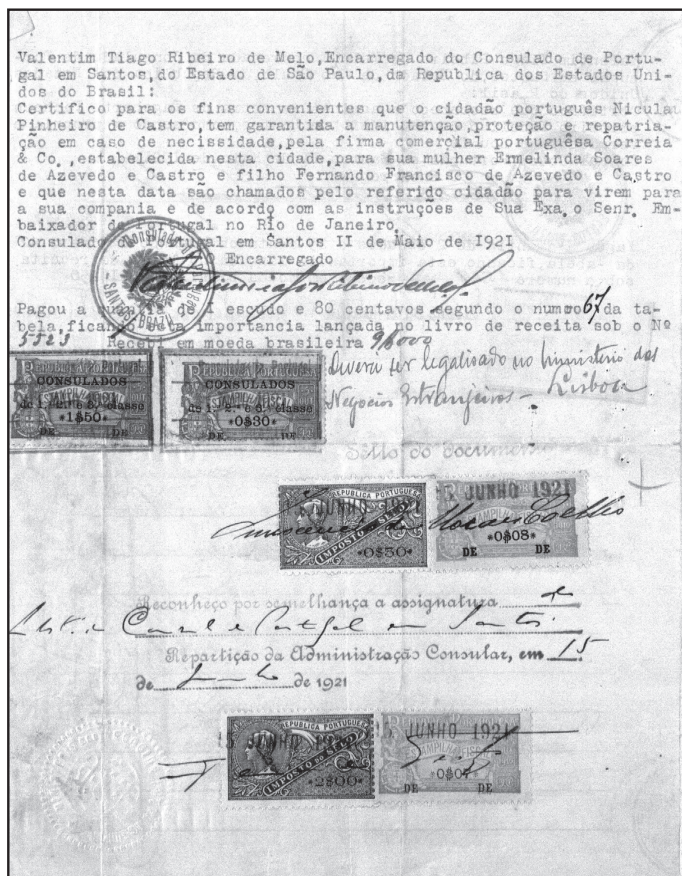 Valentim Tiago Ribeiro de Melo,Encarregado do Consulado de Portu-
gal em Santos,do Estado de São Paulo,da Republica dos Estados Uni-
dos do Brasil:
Certifico para os fins convenientes que o cidadão português Niculau
Pinheiro de Castro,tem garantida a manutenção,proteção e repatria-
ção em caso de necissidade,pela firma comercial portuguêsa Correia
& Co.,estabelecida nesta cidade,para sua mulher Ermelinda Soares
de Azevedo e Castro e filho Fernando Francisco de Azevedo e Castro
e que nesta data são chamados pelo referido cidadão para virem para
a sua compania e de acordo com as instruções de Sua Exa.o Senr. Em-
baixador de Portugal no Rio de Janeiro.
Consulado de Portugal em Santos II de Maio de I92I
O Encarregado
Pagou a quantia de I escudo e 80 centavos segundo o numero 67 da ta-
bela,ficando esta importancia lançada no livro de receita sob o Nº
5523 Recebi em moeda brasileira 9$000
Deverá ser legalisado no ministerio dos
Negocios Estrangeiros - Lisboa
CONSULADOS
de 1.ª 2.ª e 3.ª classe
1$50
DE DE
CONSULADOS
de 1.ª 2.ª e 3.ª classe
0$30
DE DE
Sello do documento
REPUBLICA PORTUGUESA
JUNHO 1921
IMPOSTO DO SELO
0$50
JUNHO 1921
ESTAMPILHA FISCAL
0$08
DE DE
Coelho
Reconheço por semelhança a assignatura de
Consul de Portugal em Santos.
Repartição da Administração Consular, em 15
de Junho de 1921
REPUBLICA PORTUGUESA
15 JUNHO 1921
IMPOSTO DO SELO
2$00
15 JUNHO 1921
ESTAMPILHA FISCAL
DE DE